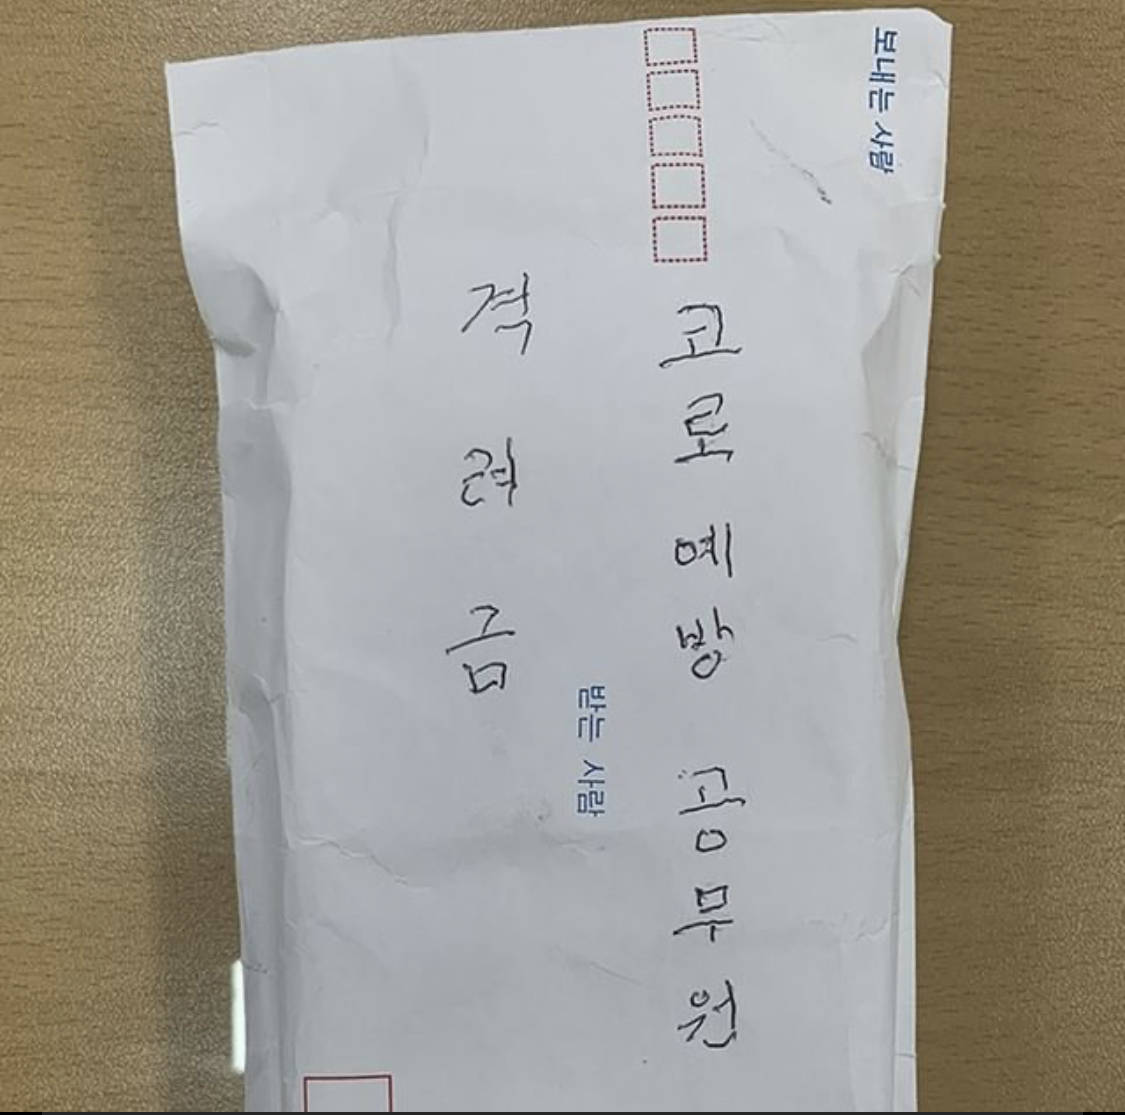 보내는 사람
코로예방 공무원
받는 사람
격려금